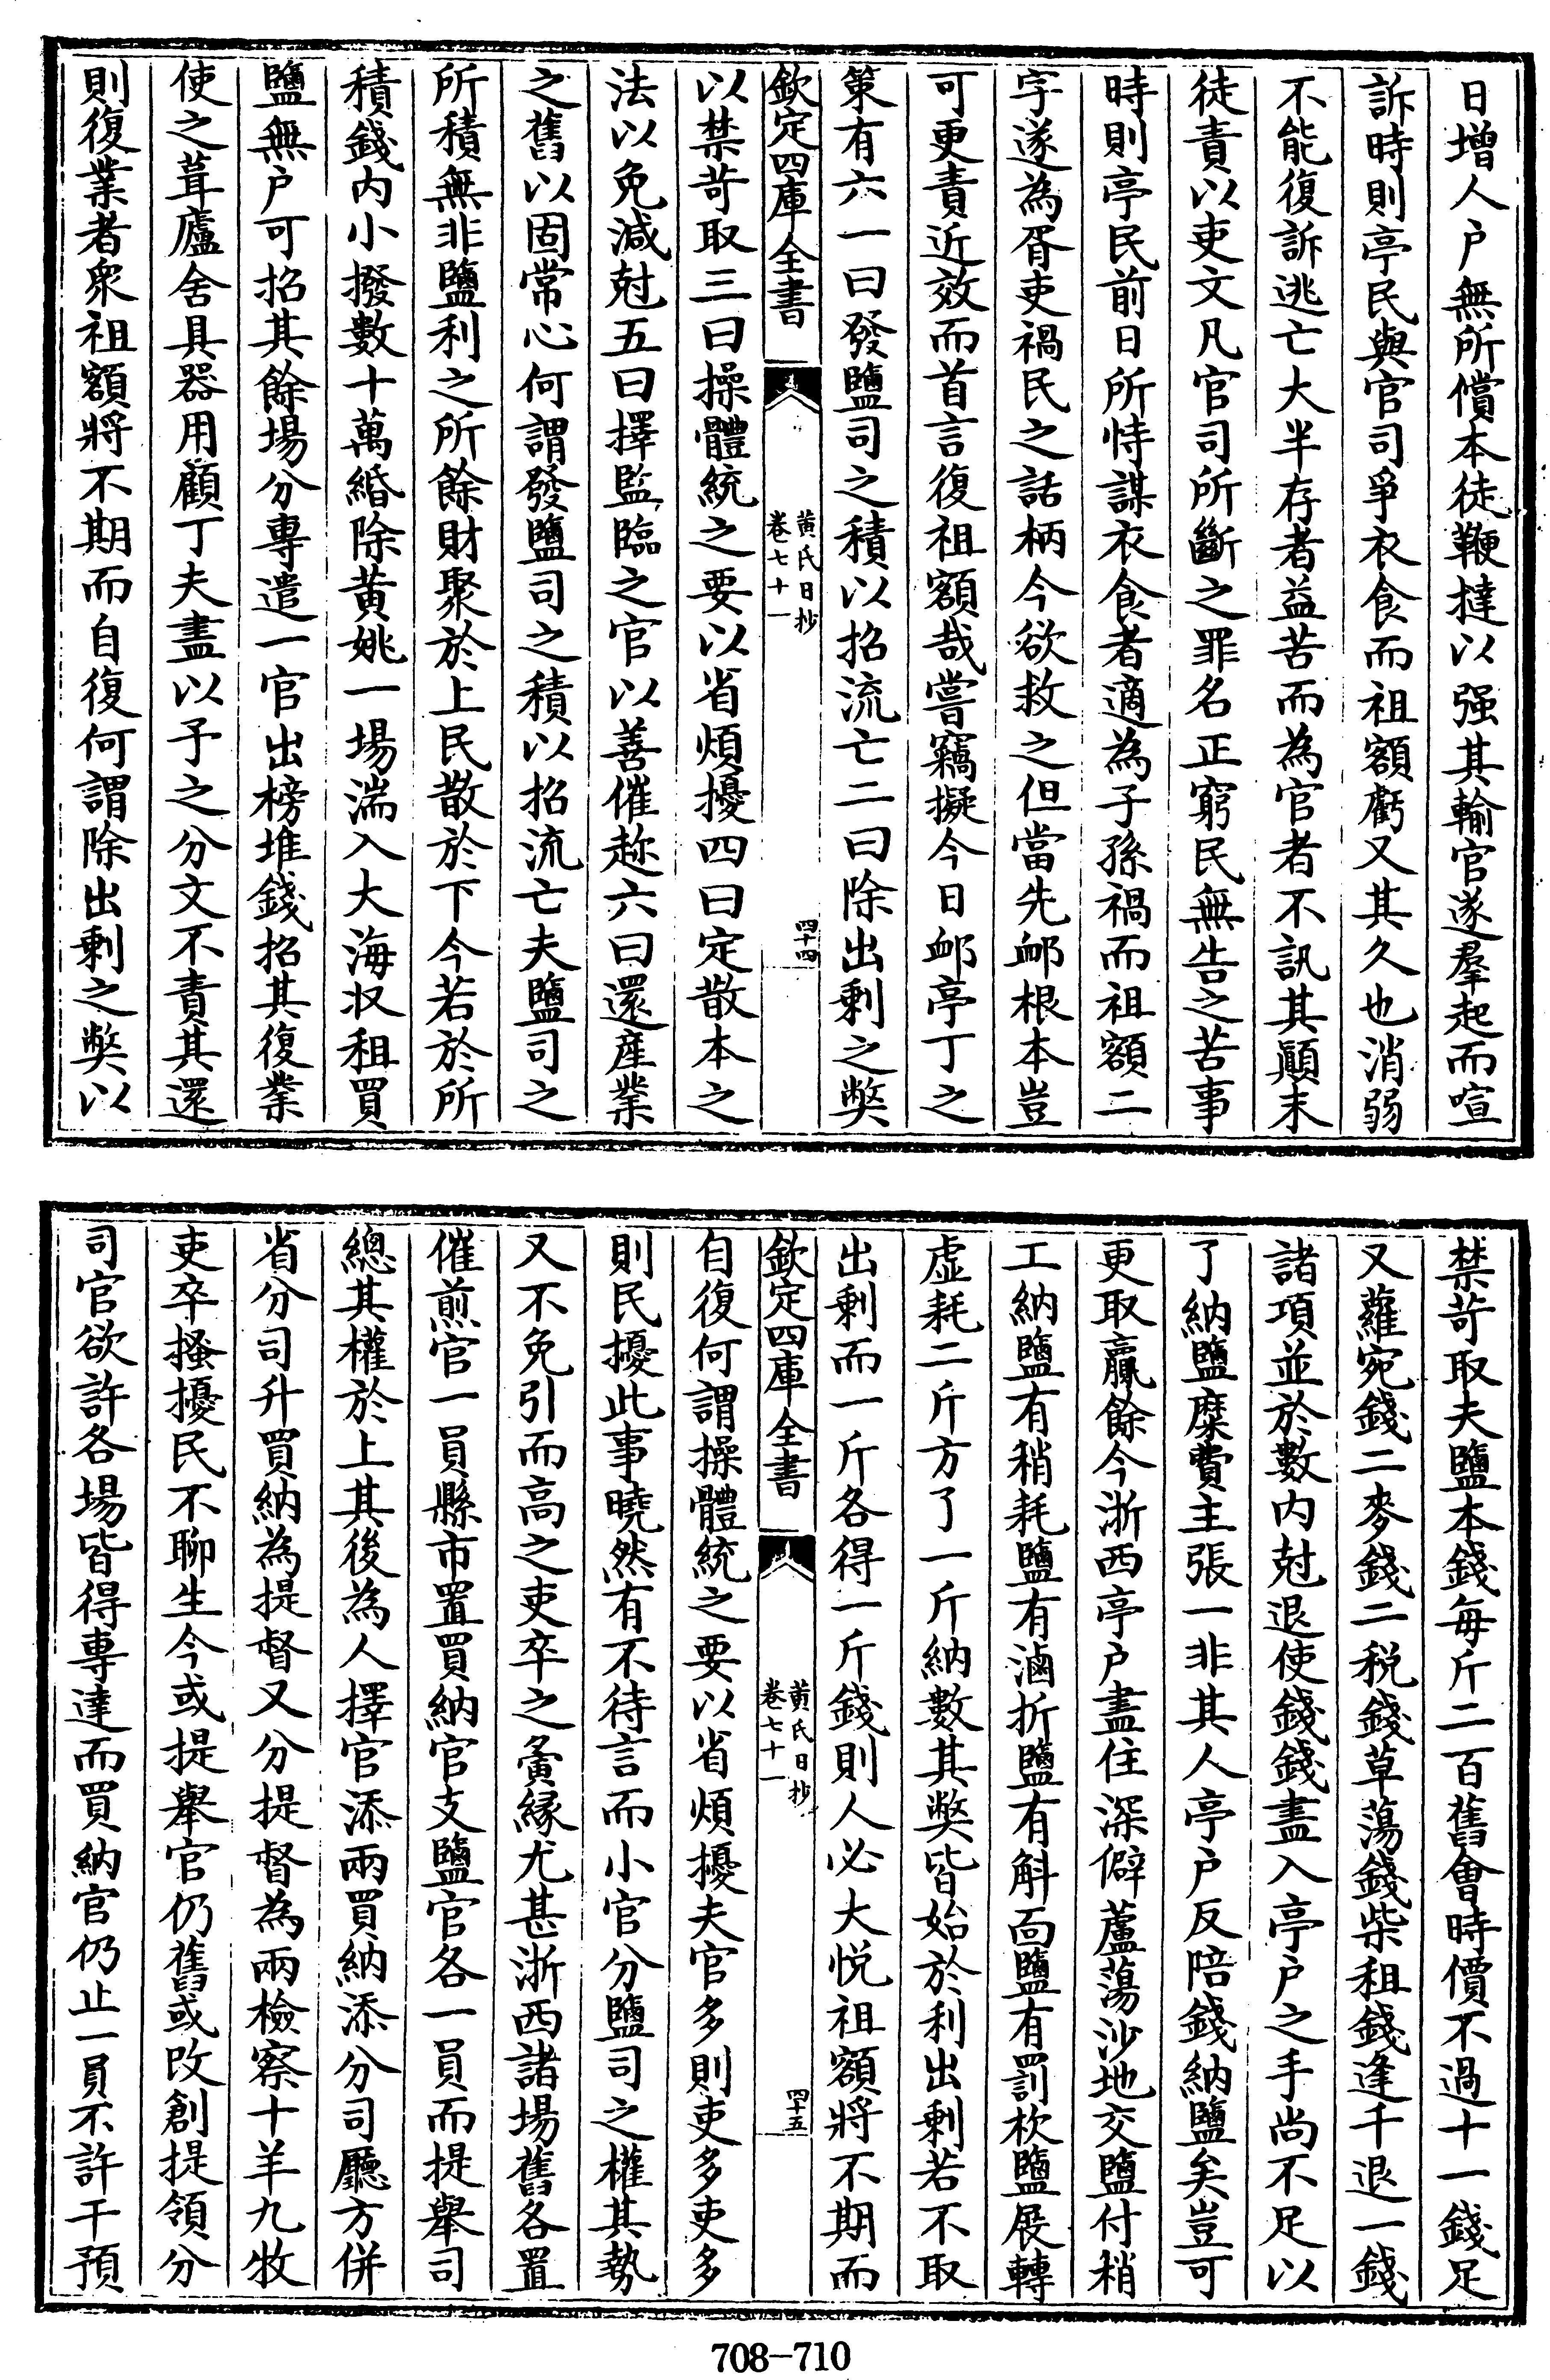 日增人户無所償本徒鞭撻以强其輸官遂羣起而喧
訴時則亭民與官司爭衣食而祖額虧又其久也消弱
不能復訴逃亡大半存者益苦而為官者不訊其顛末
徒責以吏文凡官司所斷之罪名正窮民無告之苦事
時則亭民前日所恃謀衣食者適為子孫禍而祖額二
字遂為胥吏禍民之話柄今欲救之但當先䘏根本豈
可更責近效而首言復祖額哉嘗竊擬今日䘏亭丁之
策有六一曰發鹽司之積以招流亡二曰除出剩之獘
欽定四庫全書
黄氏日抄
卷七十一
四十四
以禁苛取三曰操體統之要以省煩擾四曰定散本之
法以免減尅五曰擇監臨之官以善催趂六曰還產業
之舊以固常心何謂發鹽司之積以招流亡夫鹽司之
所積無非鹽利之所餘財聚於上民散於下今若於所
積錢内小撥數十萬緡除黄姚一場湍入大海收租買
鹽無户可招其餘場分專遣一官出榜堆錢招其復業
使之葺廬舍具器用顧丁夫盡以予之分文不責其還
則復業者衆祖額將不期而自復何謂除出剩之獘以
禁苛取夫鹽本錢每斤二百舊會時價不過十一錢足
又蘿宛錢二麥錢二税錢草蕩錢柴租錢逢千退一錢
諸項並於數内尅退使錢錢盡入亭户之手尚不足以
了納鹽糜費主張一非其人亭户反陪錢納鹽矣豈可
更取贏餘今浙西亭户盡住深僻蘆蕩沙地交鹽付稍
工納鹽有稍耗鹽有滷折鹽有斛面鹽有罰杴鹽展轉
虛耗二斤方了一斤納數其獘皆始於利出剩若不取
出剩而一斤各得一斤錢則人必大悦祖額將不期而
欽定四庫全書
黄氏日抄
卷七十一
四十五
自復何謂操體統之要以省煩擾夫官多則吏多吏多
則民擾此事曉然有不待言而小官分鹽司之權其勢
又不免引而高之吏卒之夤緣尤甚浙西諸場舊各置
催煎官一員縣市置買納官支鹽官各一員而提舉司
總其權於上其後為人擇官添兩買納添分司廳方併
省分司升買納為提督又分提督為兩檢察十羊九牧
吏卒搔擾民不聊生今或提舉官仍舊或改創提領分
司官欲許各場皆得專達而買納官仍止一員不許干預
708-710